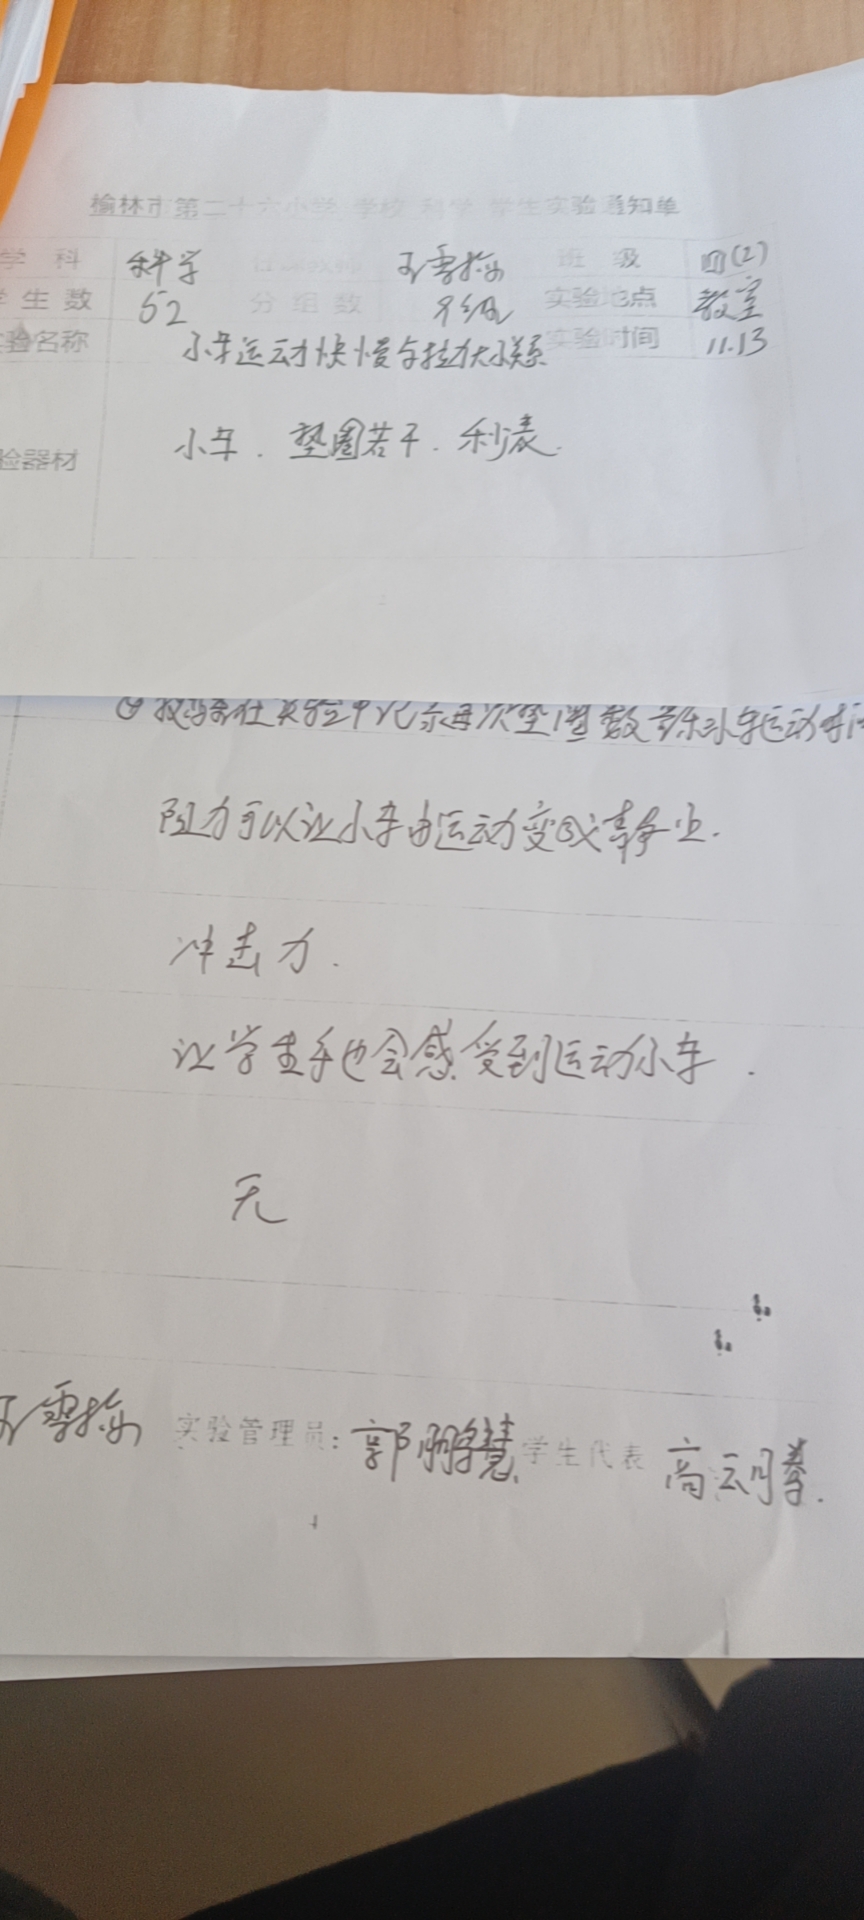 榆林市第二十六小学 学校 科学 学生实验通知单
学 科 科学 任课教师 王雪梅 班 级 四(2)
学生数 52 分组数 9组 实验地点 教室
验名称 小车运动快慢与拉力大小关系 实验时间 11.13
验器材 小车. 垫圈若干. 秒表.
在实验中记录每次垫圈数 小车运动时
阻力可以让小车由运动变成静止.
冲击力.
让学生手也会感受到运动小车.
无
王雪梅 实验管理员: 郭鹏慧 学生代表 高云